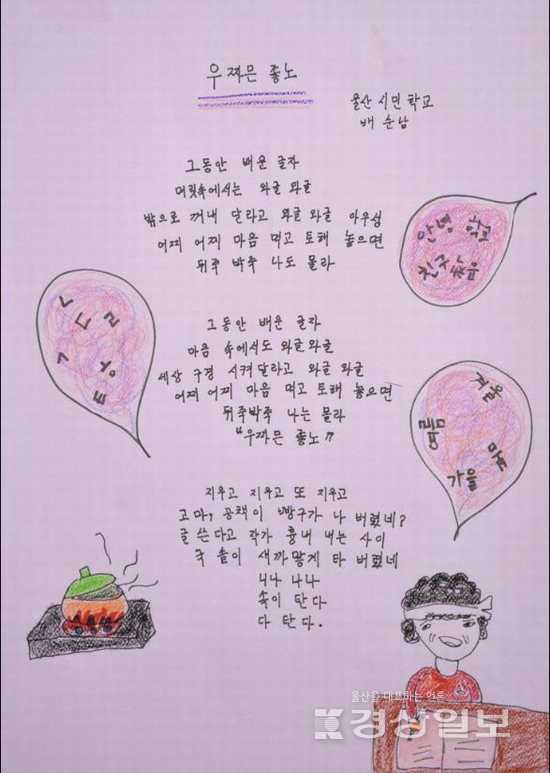 우짜믄 좋노
울산 시민 학교
배 순남
그동안 배운 글자
머릿속에서는 와글 와글
밖으로 꺼내 달라고 와글 와글 아우성
어찌 어찌 마음 먹고 토해 놓으면
뒤죽 박죽 나도 몰라
안녕 학교
친구 웃음
ㄴ
ㄱ ㄷ ㄹ
ㅌ ㅇ ㅅ
그동안 배운 글자
마음 속에서도 와글와글
세상 구경 시켜달라고 와글 와글
어찌 어찌 마음 먹고 토해 놓으면
뒤죽박죽 나는 몰라
"우짜믄 좋노"
겨울
여름
봄
가을
지우고 지우고 또 지우고
고마, 공책이 빵구가 나 버렸네?
글 쓴다고 작가 흉내 내는 사이
국 솥이 새까맣게 타 버렸네
니나 나나
속이 탄다
다 탄다.
울산을 대표하는 언론
경상일보